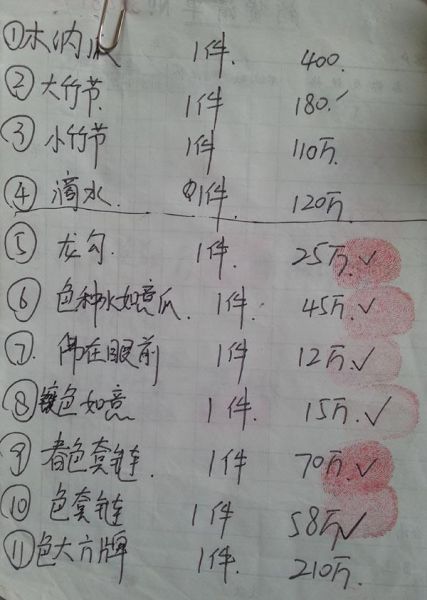 ①木纳瓜 1件. 400.
② 大竹节 1件 180.✓
③ 小竹节 1件 110万.
④ 滴水. 1件. 120万.
⑤ 龙勾. 1件. 25万.✓
⑥ 色种水如意瓜. 1件. 45万.✓
⑦. 佛在眼前 1件 12万.✓
⑧ 色如意 1件. 15万.✓
⑨ 春色套链. 1件 70万.✓
⑩ 色套链 1件 58万✓
⑪色大方牌 1件. 210万.